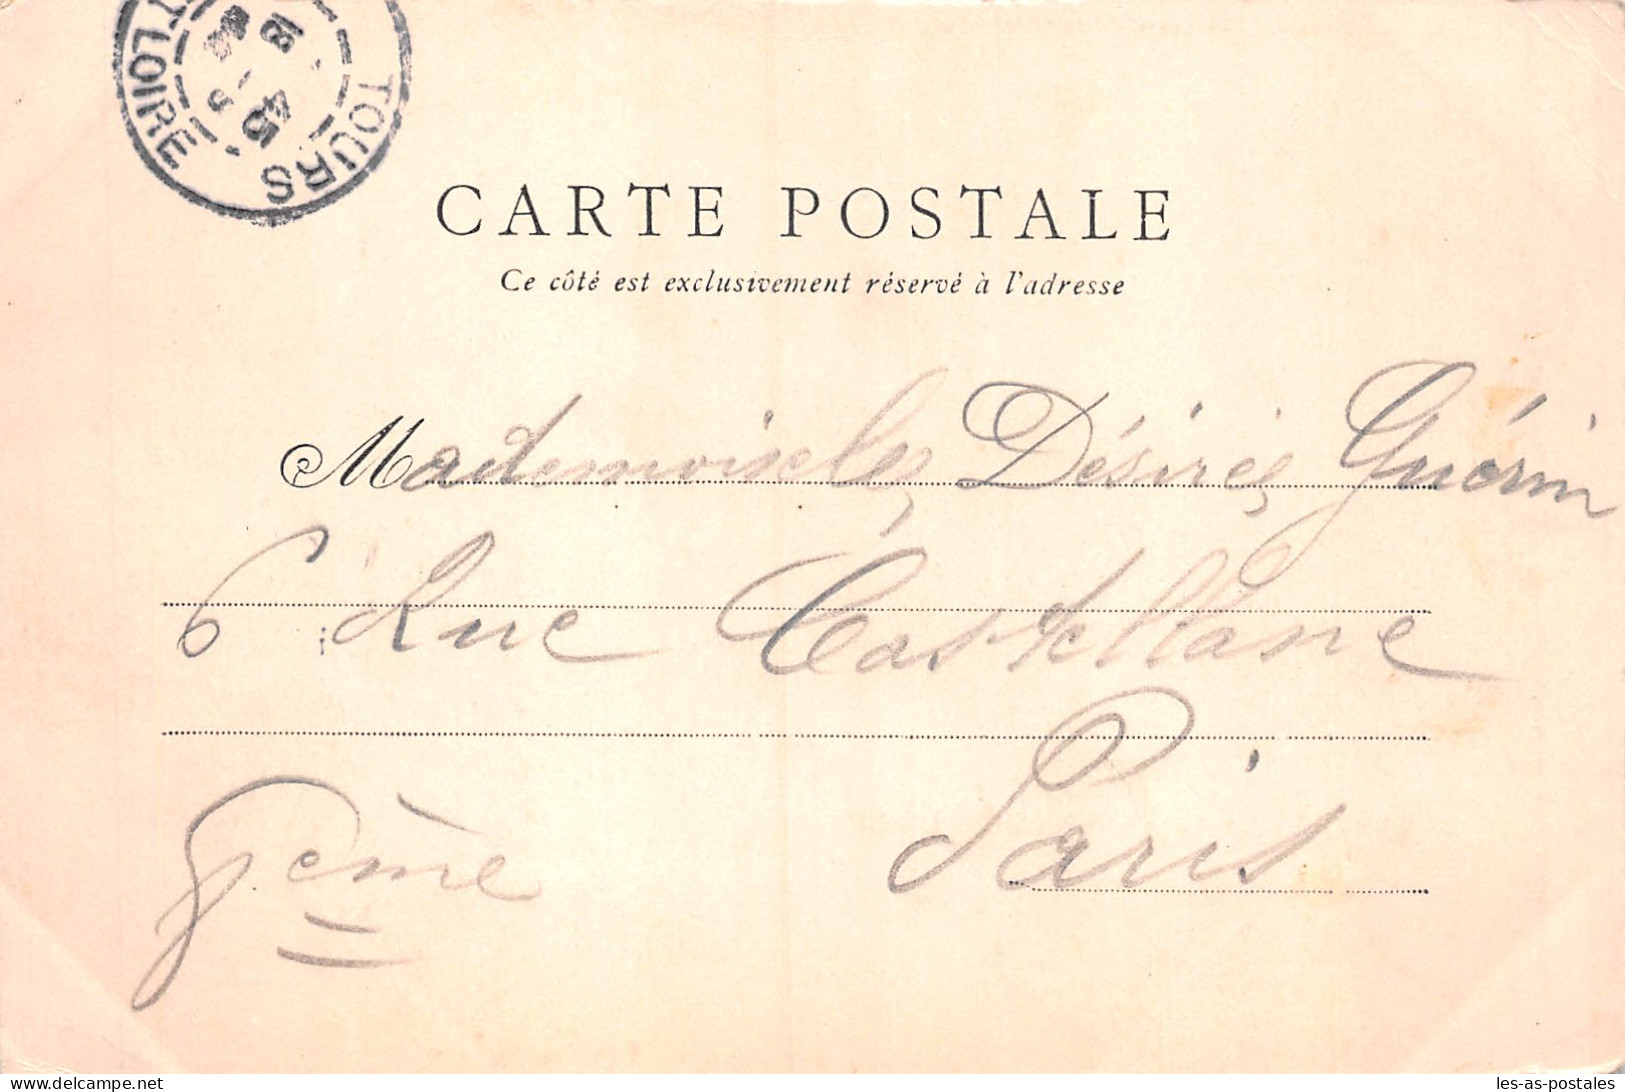 T LOIRE
TOURS
18
45
CARTE POSTALE
Ce côté est exclusivement réservé à l'adresse
Mademoiselle Désirée Guérin
6 Rue Castellane
Paris
8ème
http://www.delcampe.net
les-as-postales